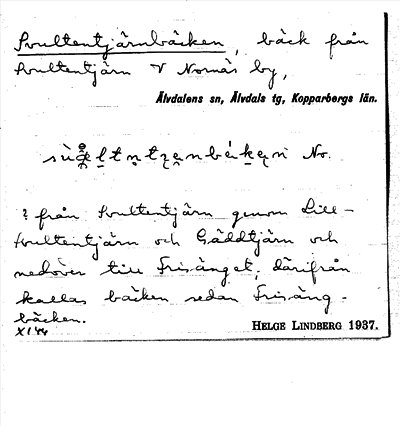 Svultentjärnbäcken, bäck från
Svultentjärn V Nornäs by,
Älvdalens sn, Älvdals tg, Kopparbergs län.
No.
? från Svultentjärn genom Lill-
svultentjärn och Gäddtjärn och
nedöver till Frisänget, därifrån
kallas bäcken sedan Frisäng-
bäcken.
X144
HELGE LINDBERG 1937.